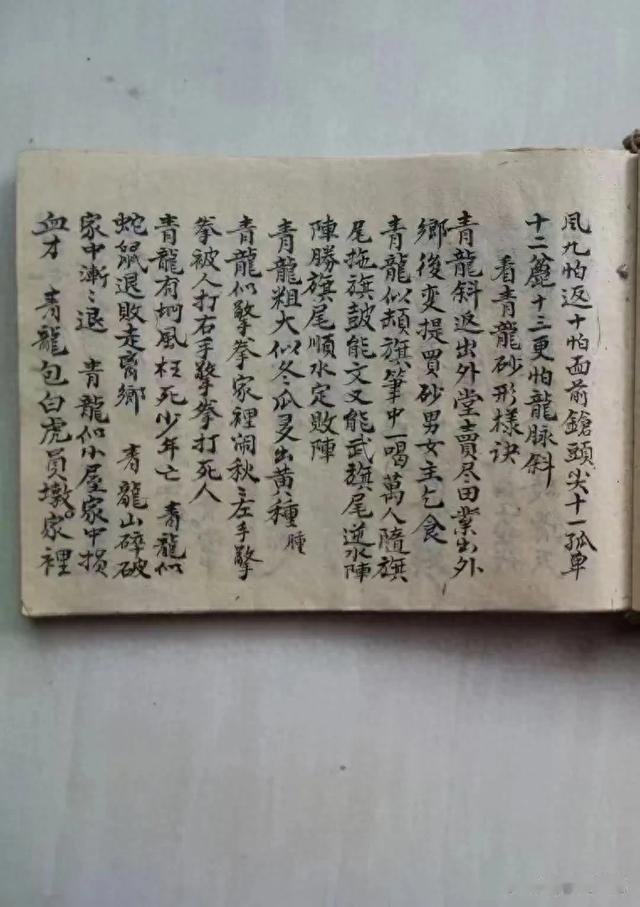 風九怕返十怕面前鎗頭尖十一孤单
十二藨十三更怕龍脉斜
看青龍砂形樣诀
青龍斜返出外堂賣尽田業出外
鄉後変提買砂男女主乞食
青龍似頡旗筆中一喝萬人隨旗
尾拖旗鼓能文又能武旗尾逆水陣
陣勝旗尾順水定敗陣
青龍粗大似冬瓜灵出黄種
腫
青龍似擎拳家裡闹秋〻左手擎
拳被人打右手擎拳打死人
青龍有坳風枉死少年亡 青龍似
蛇鼠退敗走离鄉 青龍山碎破
家中漸〻退 青龍似小屋家中損
血才 青龍包白虎員墩家裡